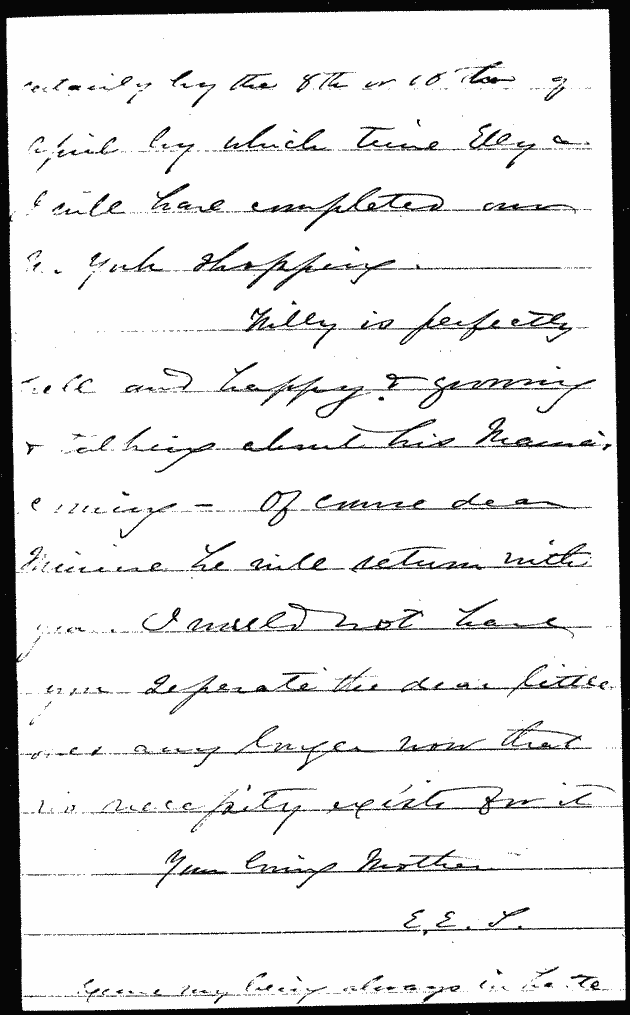 certainly by the 8th or 10th of
April by which time Elly &
I will have completed our
N. York shopping.
Willy is perfectly
well and happy & growing
& talking about his Mama's
coming - Of course dear
Minnie he will return with
you. I would not have
you seperate the dear little
ones any longer now that
no necessity exists for it
Your loving Mother
E. E. S.
Excuse my being always in haste